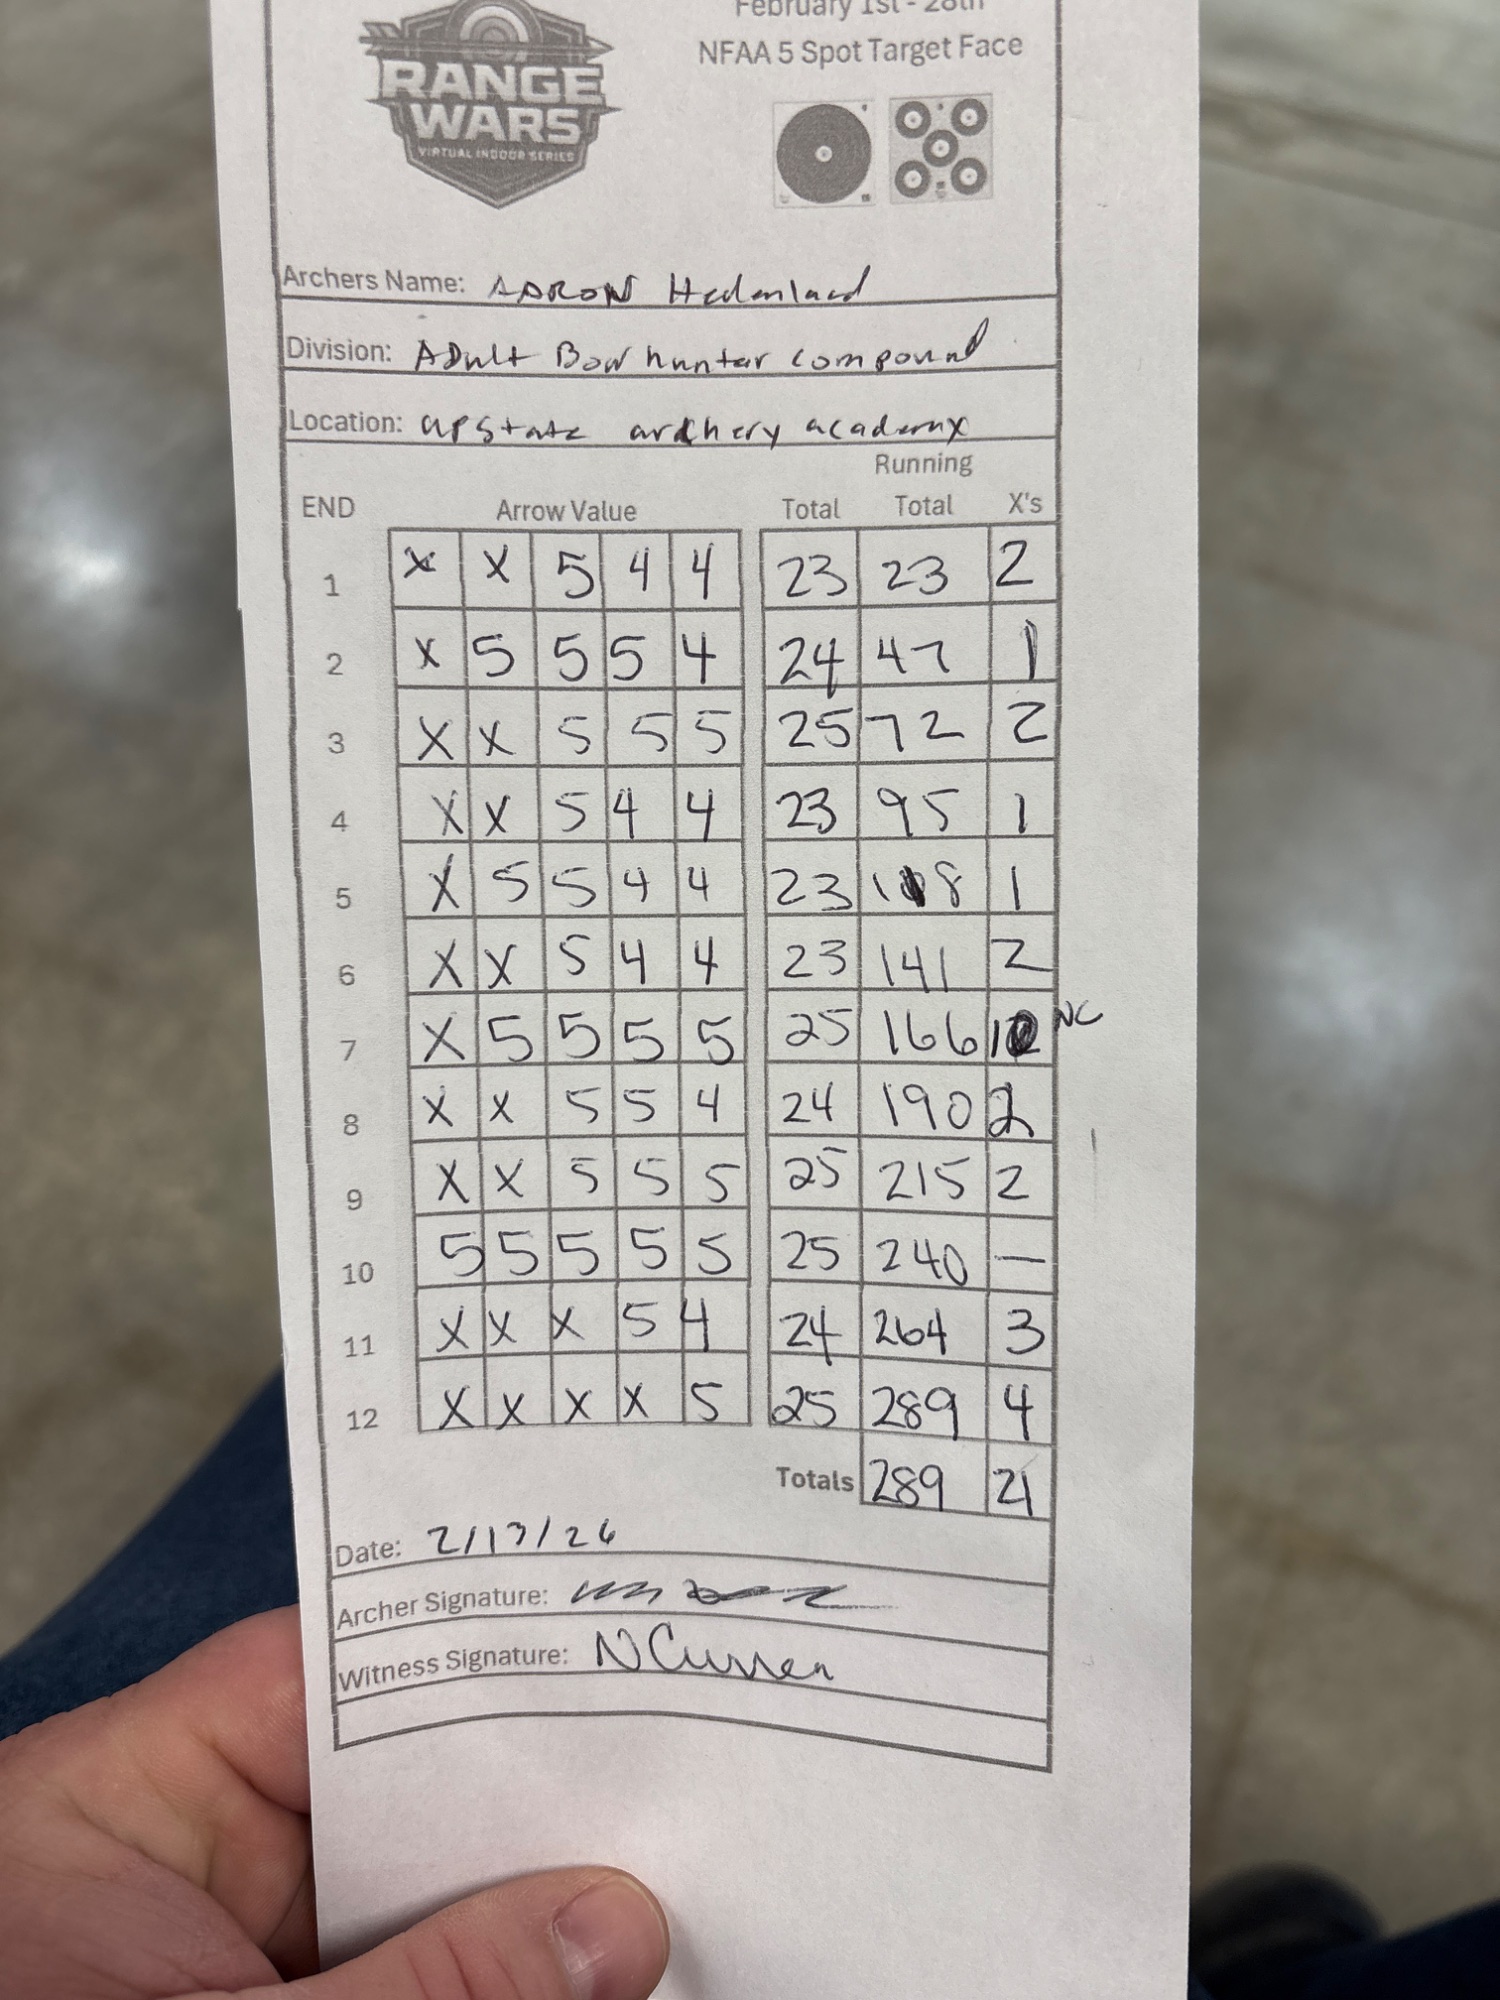 February 1st - 28th
NFAA 5 Spot Target Face
RANGE
WARS
VIRTUAL INDOOR SERIES
Archers Name: AARON Hedenland
Division: ADult Bowhunter compound
Location: upstate archery academy
Running
END Arrow Value Total Total X's
1 X X 5 4 4 23 23 2
2 X 5 5 5 4 24 47 1
3 X X 5 5 5 25 72 2
4 X X 5 4 4 23 95 1
5 X 5 5 4 4 23 118 1
6 X X 5 4 4 23 141 2
7 X 5 5 5 5 25 166 1 NC
8 X X 5 5 4 24 190 2
9 X X 5 5 5 25 215 2
10 5 5 5 5 5 25 240 —
11 X X X 5 4 24 264 3
12 X X X X 5 25 289 4
Totals 289 21
Date: 2/13/26
Archer Signature:
Witness Signature: N Curren